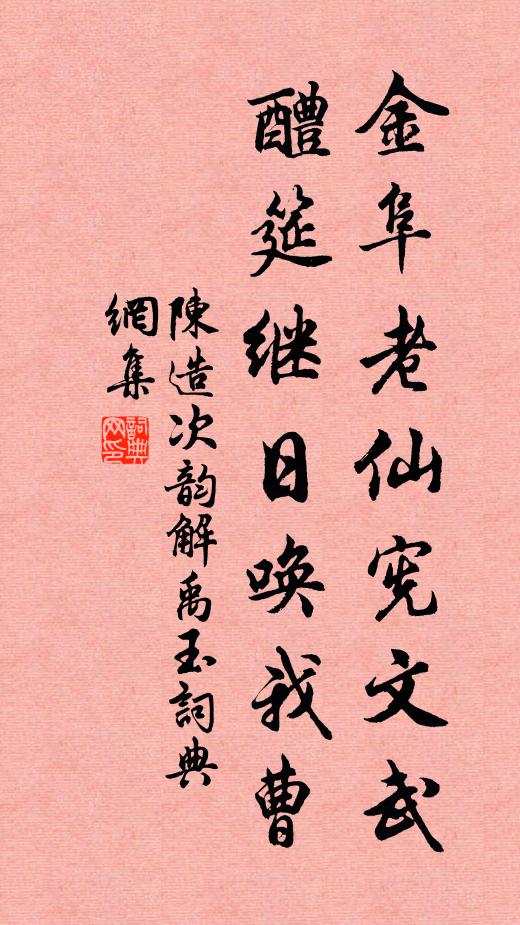 金阜老仙宪文武
醴筵继日唤我曹
陳造次韵解禹玉詞典
網集
詞典網印